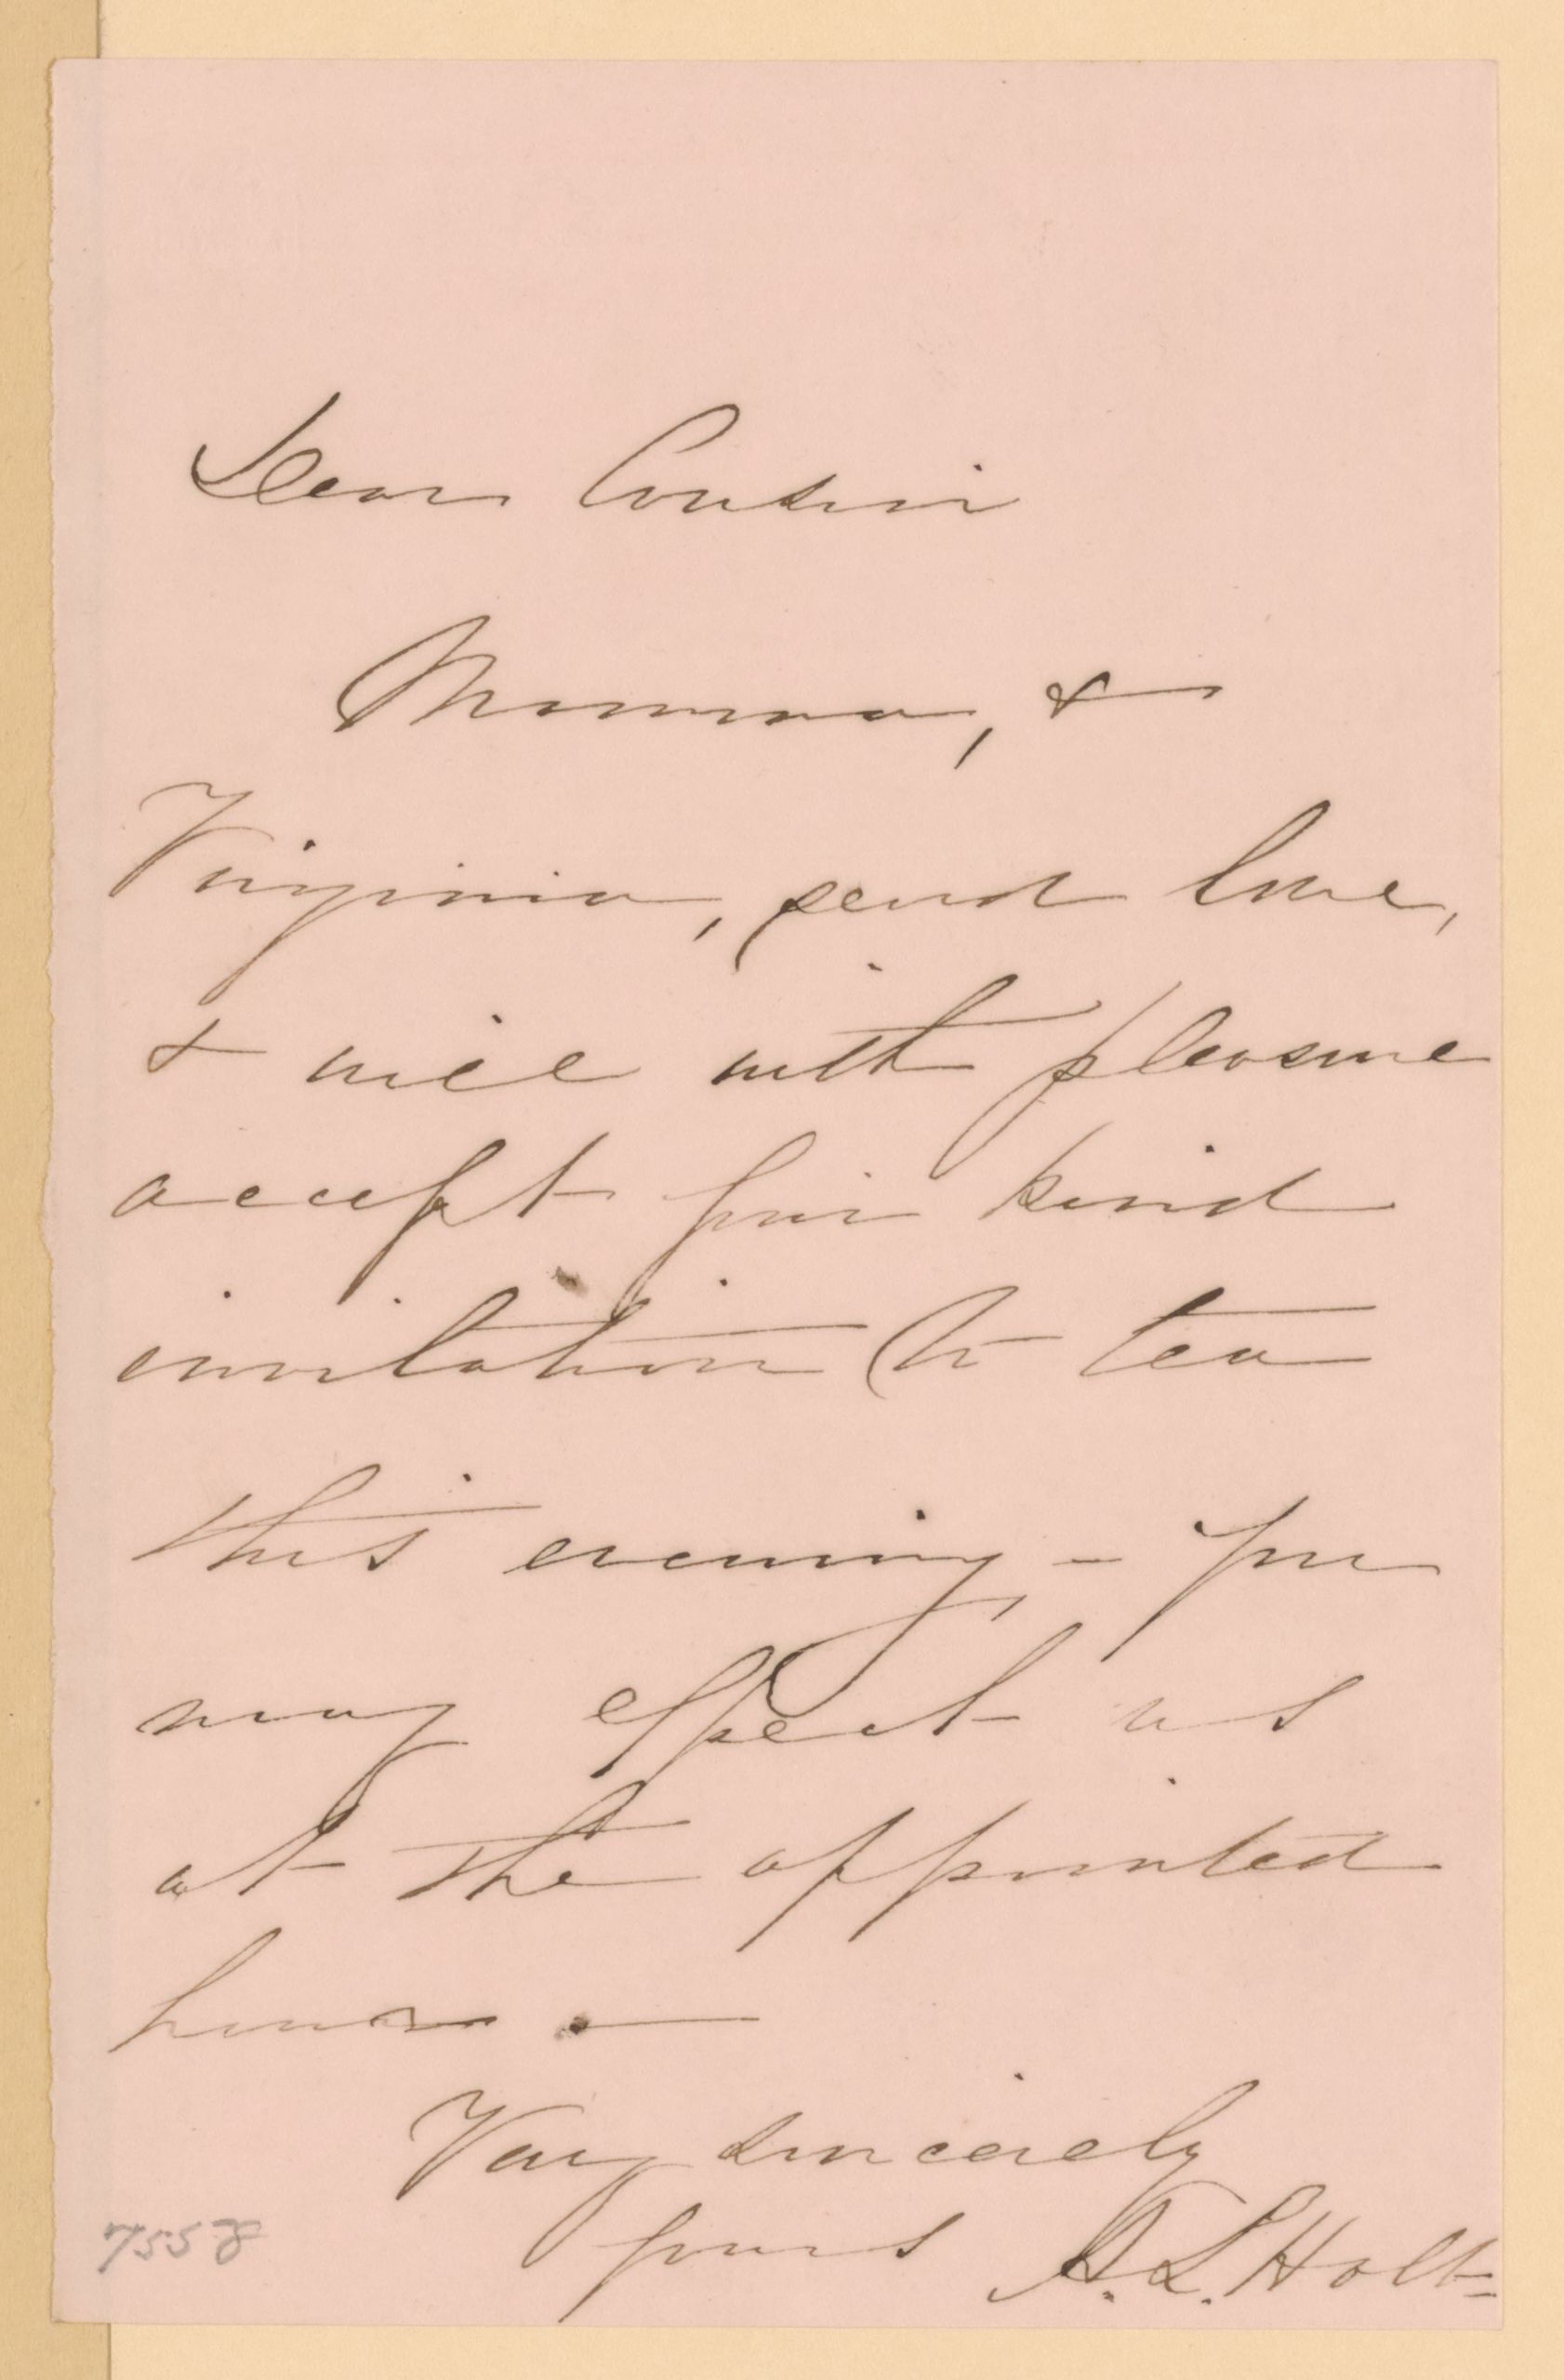 Dear Cousin
Mamma, &
Virginia, send love,
& will with pleasure
accept your kind
invitation to tea
this evening - you
may expect us
at the appointed
hour. —
Very sincerely
yours A. L. Holt
7558